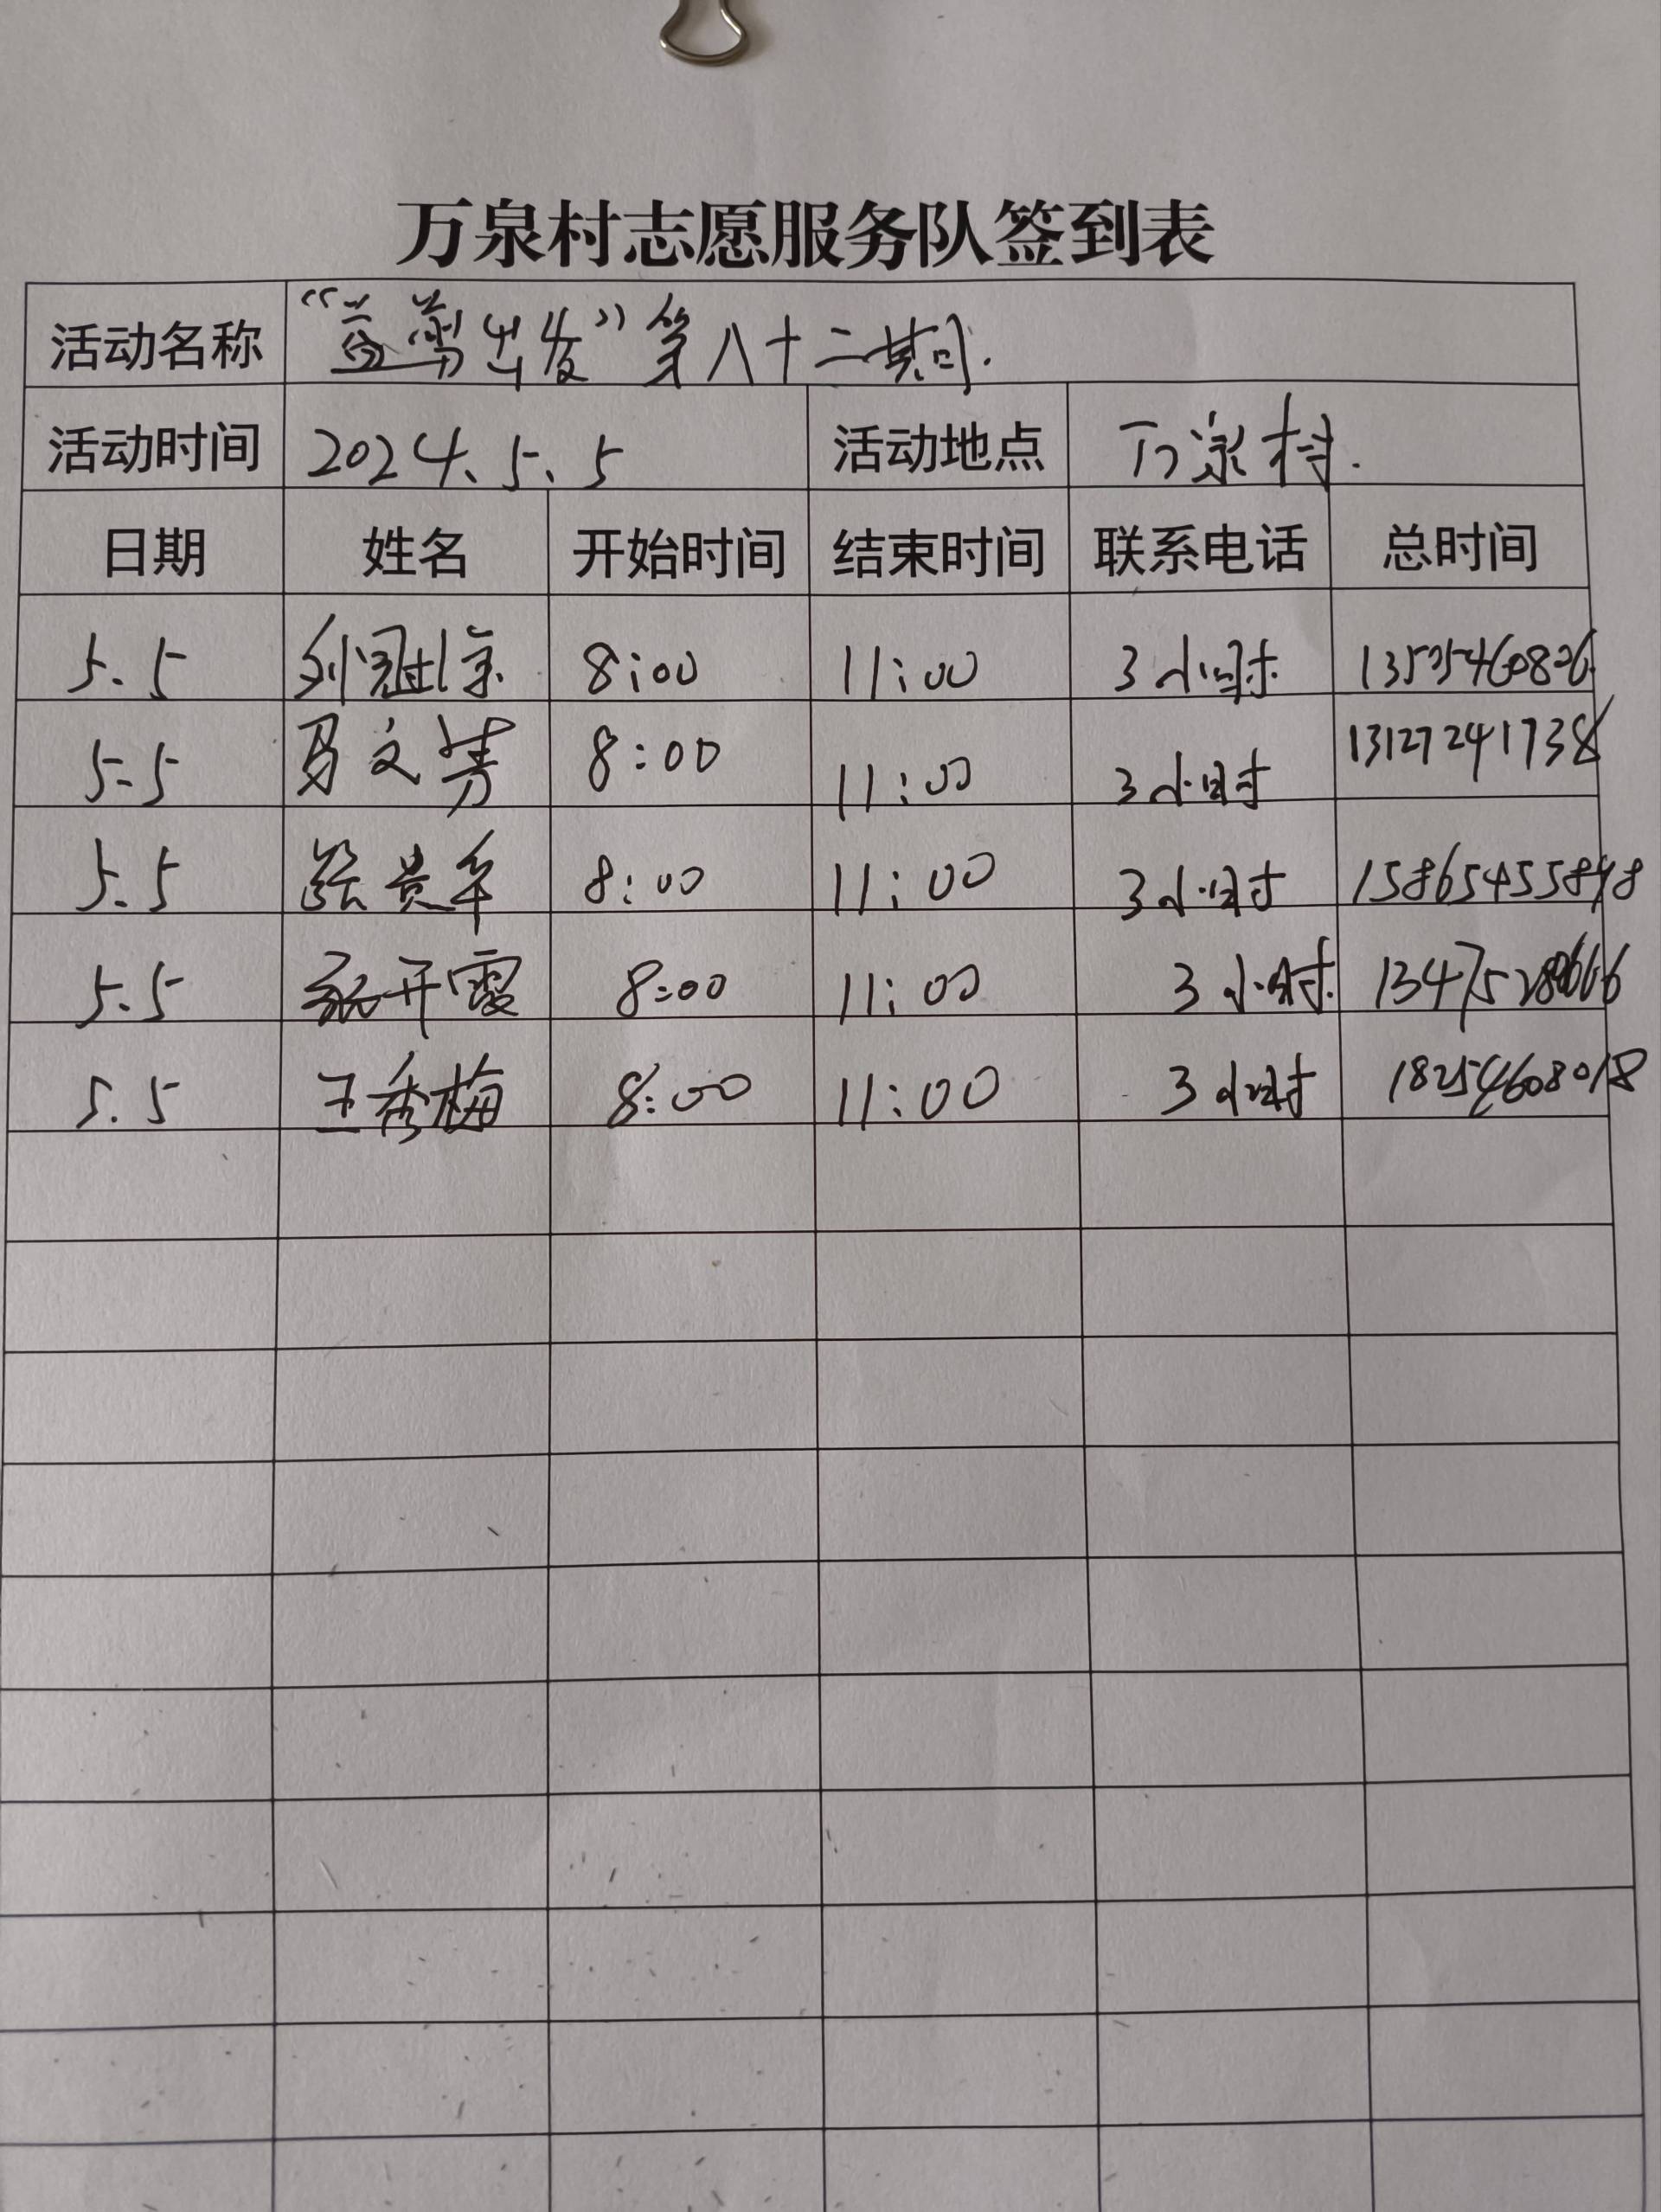 万泉村志愿服务队签到表
活动名称 "益剪出发"第八十二期.
活动时间 2024.5.5 活动地点 万泉村.
日期 姓名 开始时间 结束时间 联系电话 总时间
5.5 刘冠京 8:00 11:00 3小时
5.5 马文芳 8:00 11:00 3小时 13127241738
5.5 张贵年 8:00 11:00 3小时 15865455898
5.5 开霞 8:00 11:00 3小时
5.5 王秀梅 8:00 11:00 3小时 18254608018